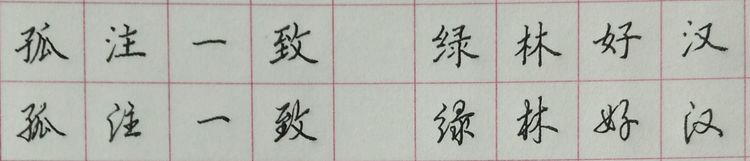 孤注一致 绿林好汉
孤注一致 绿林好汉